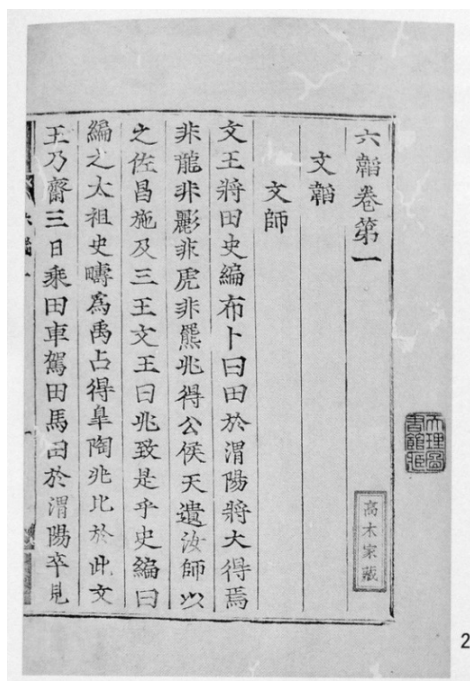 六韜卷第一
文韜
文師
文王將田史編布卜曰田於渭陽將大得焉
非龍非彲非虎非羆兆得公侯天遺汝師以
之佐昌施及三王文王曰兆致是乎史編曰
編之太祖史疇爲禹占得皐陶兆比於此文
王乃齋三日乘田車駕田馬田於渭陽卒見
高木家藏
天理圖
書館藏
2